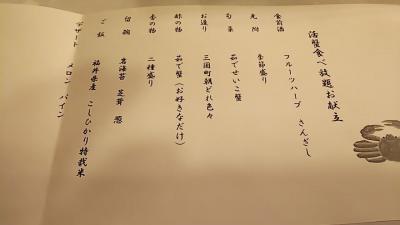 活蟹食べ放題お献立
食前酒　フルーツハーブ　さんざし
先附　季節盛り
旬菜　茹でせいこ蟹
お造り　三国町朝どれ色々
酢の物　茹で蟹（お好きなだけ）
香の物　二種盛り
留椀　岩海苔　芝茸　葱
ご飯　福井県産　こしひかり特栽米
デザート　メロン　パイン